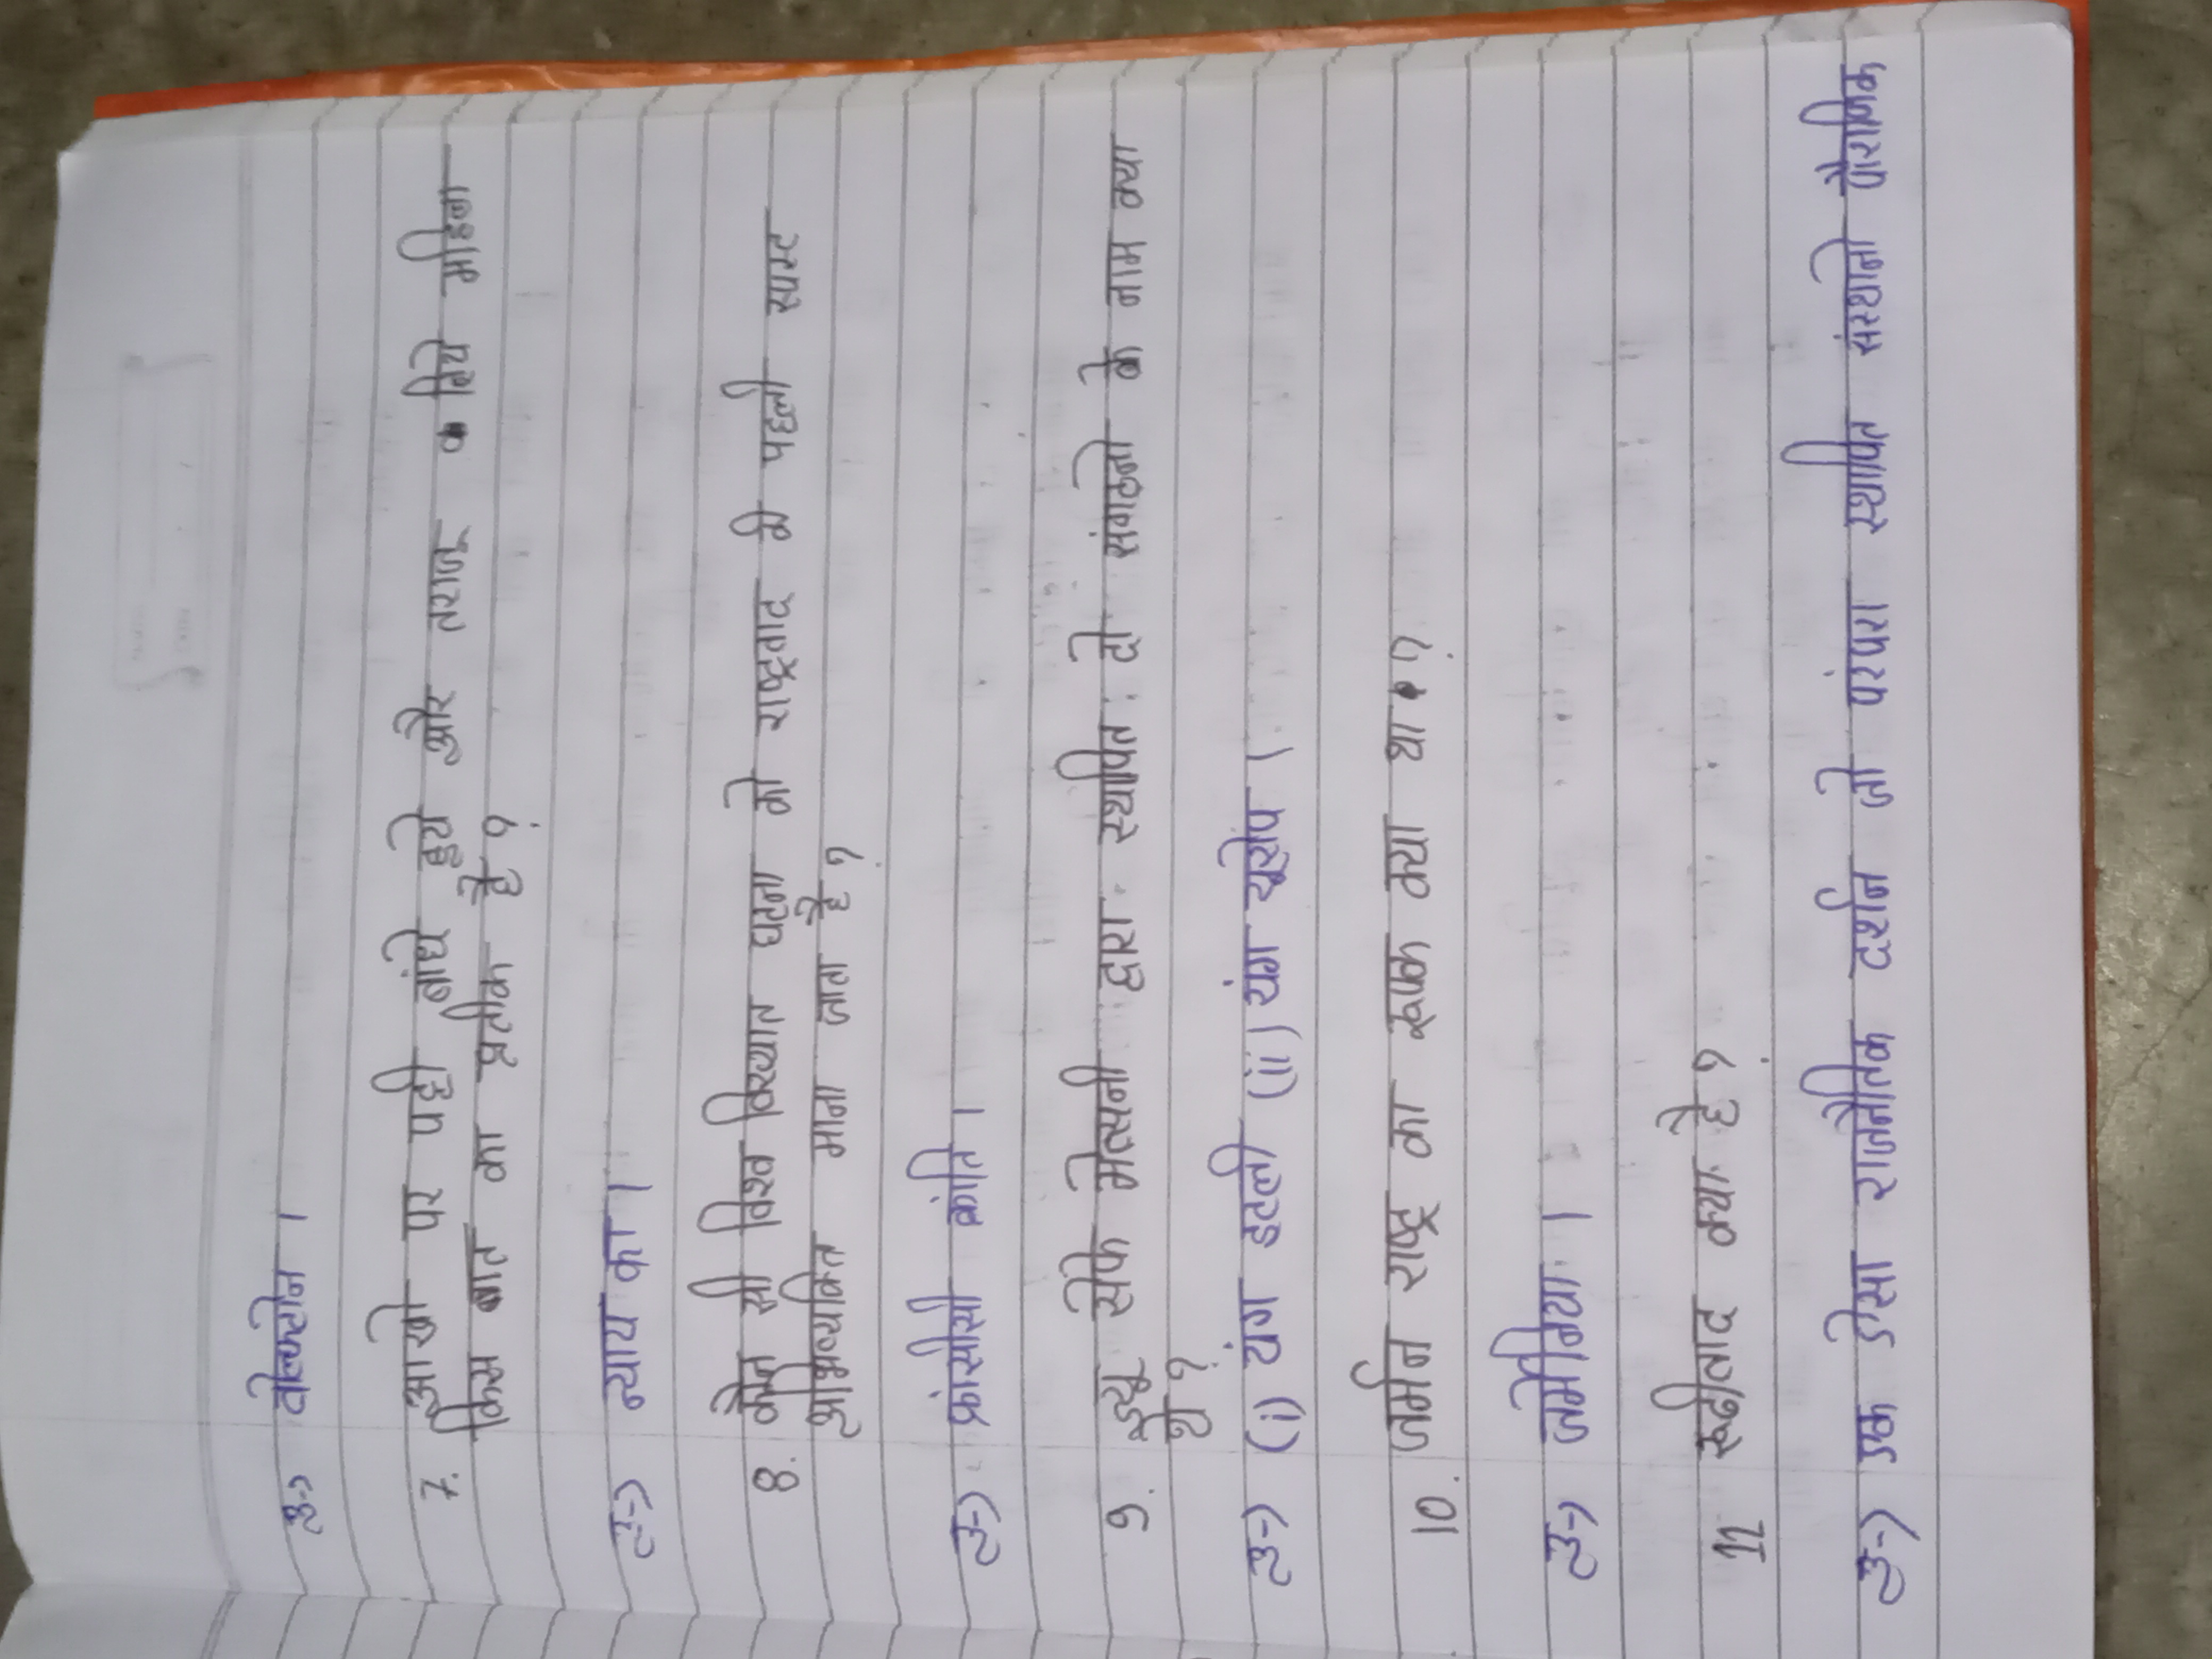 उ-> वोल्फटोन ।
7. आखो पर पट्टी बांधे हुये और तराजू लिये महिला
किस बात का प्रतीक है ?
उ-> न्याय का ।
8. कौन सी विश्व विख्यात घटना को राष्ट्रवाद की पहली स्पस्ट
अभिव्यक्ति माना जाता है ?
उ-> फ्रांसीसी क्रांति ।
9. ज्यू सेफे मेत्सनी द्वारा स्थापित दो संगठनो के नाम क्या
थे ?
उ-> (i) यंग इटली (ii) यंग यूरोप ।
10. जर्मन राष्ट्र का रूपक क्या था ?
उ-> जर्मेनिया ।
11 रूढीवाद क्या है ?
उ-> एक ऐसा राजनैतिक दर्शन जो परंपरा स्थापित संस्थानो पौराणिक